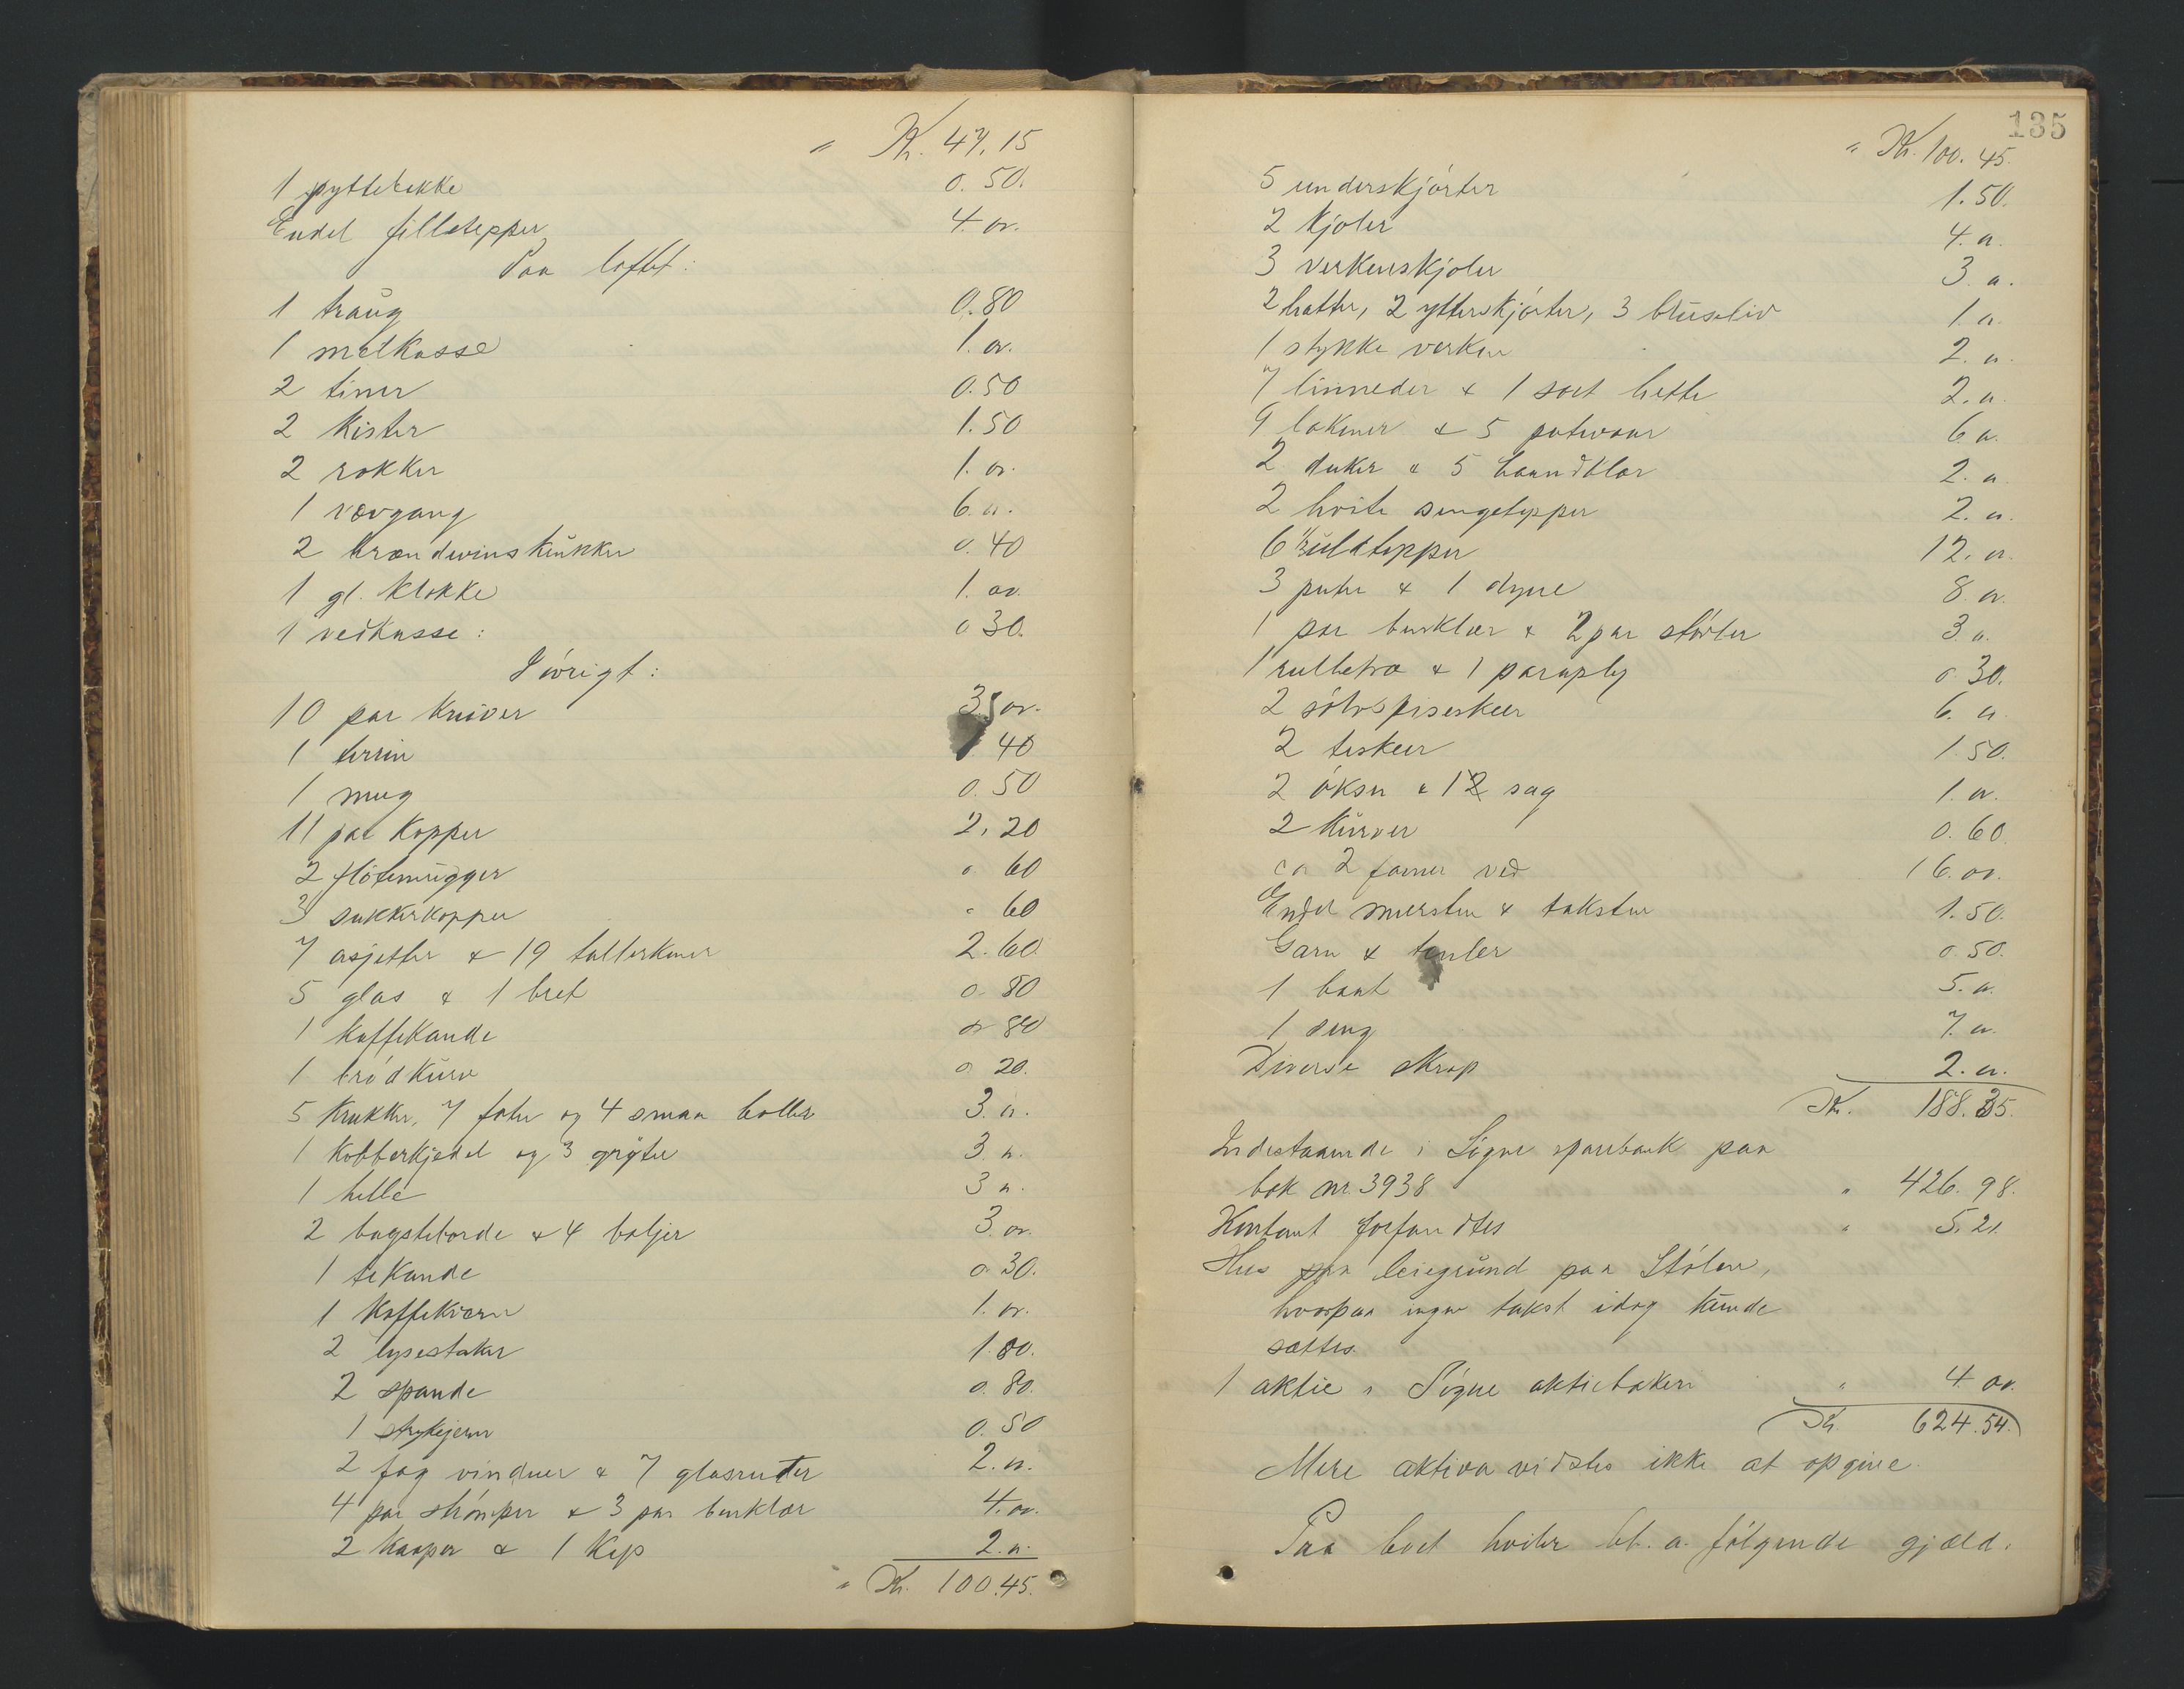 " Kr. 47.15
1 pyttebøkke 0.50.
Endel filletepper 4. oo.
Paa loftet:
1 traug 0.80
1 melkasse 1. oo.
2 tiner 0.50
2 kister 1.50
2 rokker 1. oo.
1 vævgang 6. oo.
2 brændevinskrukker 0.40
1 gl. klokke 1. oo.
1 vedkasse: 0 30.
Iøvrigt:
10 par kniver 3. oo.
1 terrin 40
1 mug 0.50
11 par kopper 2.20
2 fløtemugger 0. 60
3 sukkerkopper " 60
7 asjetter & 19 tallerkener 2.60
5 glas & 1 bret 0. 80
1 kaffekande 0. 80
1 brødkurv 0. 20.
5 krukker, 7 fater og 4 smaa boller 3. oo.
1 kobberkjedel og 3 gryter 3. oo.
1 helle 3 oo.
2 bagsteborde & 4 baljer 3. oo.
1 tekande 0. 30.
1 kaffekværn 1. oo.
2 lysestaker 1.80.
2 spande 0. 80.
1 strykejern 0. 50
2 fag vinduer & 7 glasruter 2. oo.
4 par strømper & 3 par benklær 4. oo.
2 kaaper & 1 kep 2. oo.
" Kr. 100.45.
135
" Kr. 100.45.
5 underskjørter 1.50.
2 kjoler 4. oo.
3 verkenskjoler 3. oo.
2 hatter, 2 ytterskjørter, 3 bluseliv 1. oo.
1 stykke verken 2. oo.
7 linneder & 1 sort hette 2. oo.
9 lakener & 5 putevaar 6 oo.
2 duker & 5 haandklær 2. oo.
2 hvite sengetepper 2. oo.
6 uldtepper 12. oo.
3 puter & 1 dyne 8. oo.
1 par benklær & 2 par støvler 3. oo.
1 rulletræ & 1 paraply 0. 30.
2 sølvspiseskeer 6. oo.
2 teskeer 1.50.
2 økser & 1 sag 1. oo.
2 kurver 0.60.
ca 2 favner ved 16. oo.
Endel mursten & taksten 1.50.
Garn & teiler 0.50.
1 baat 5. oo.
1 seng 7. oo.
Diverse skrap 2. oo.
Kr. 188.35.
Indestaaende i Søgne sparebank paa
bok nr. 3938 " 426.98.
Kontant forfandtes " 5.21.
Hus paa leiegrund paa Stølen,
hvorpaa ingen takst idag kunde
sættes.
1 aktie i Søgne aktiebakeri " 4 oo.
Kr. 624.54.
Mere aktiva vidstes ikke at opgive.
Paa boet hviler bl. a. følgende gjæld.